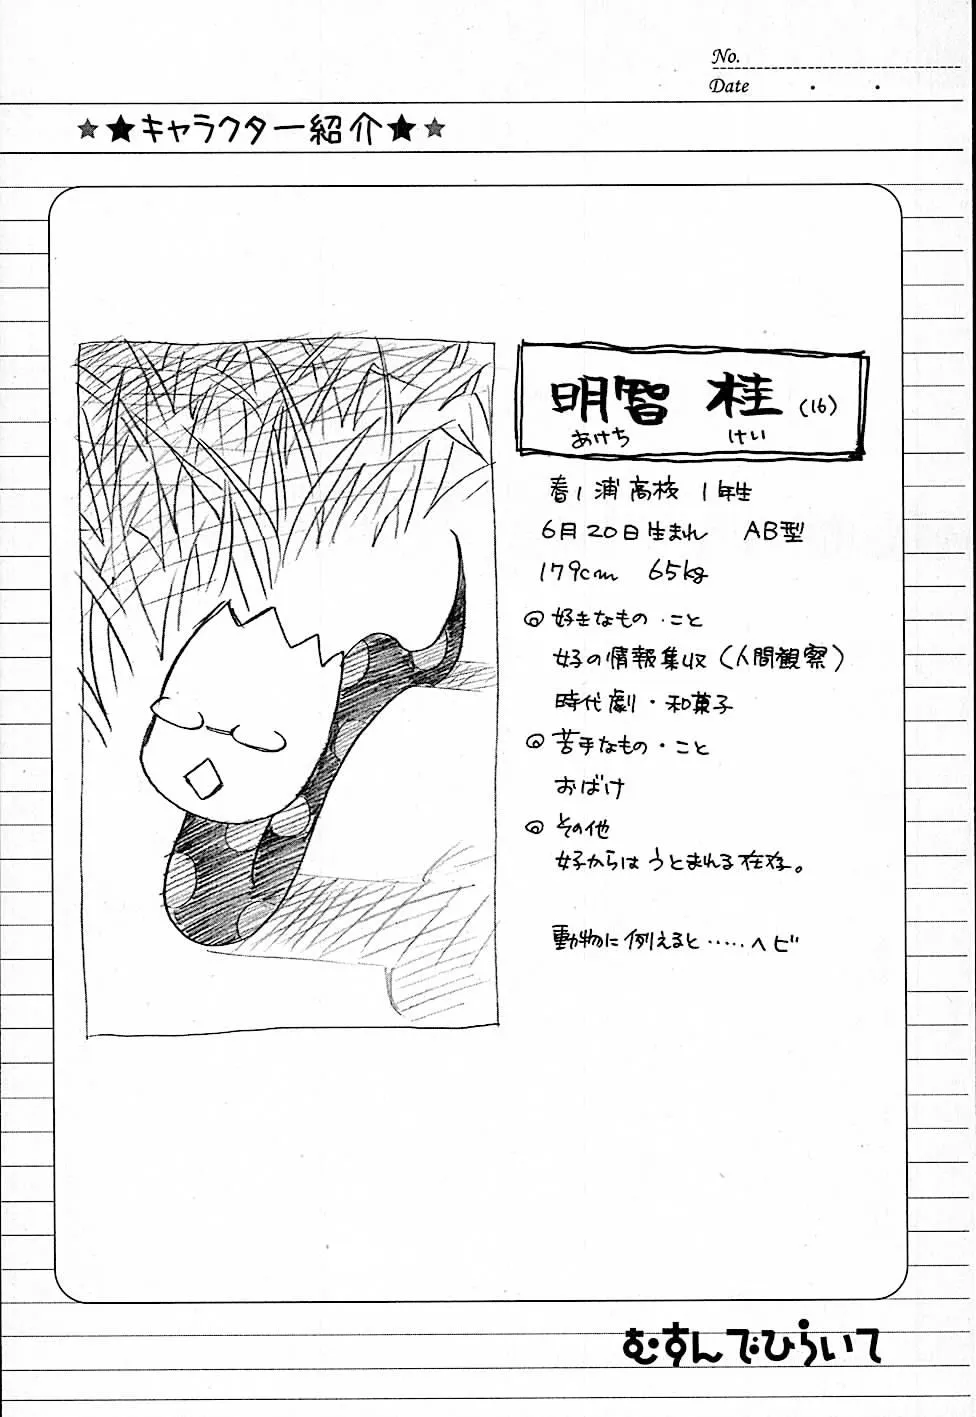 No.
Date . .
★★キャラクター紹介★★
明智 桂 (16)
あけち けい
春ノ浦高校 1年生
6月20日生まれ AB型
179cm 65kg
◎好きなもの・こと
女子の情報集収(人間観察)
時代劇・和菓子
◎苦手なもの・こと
おばけ
◎その他
女子からはうとまれる存在。
動物に例えると・・・・・ヘビ
むすんでひらいて